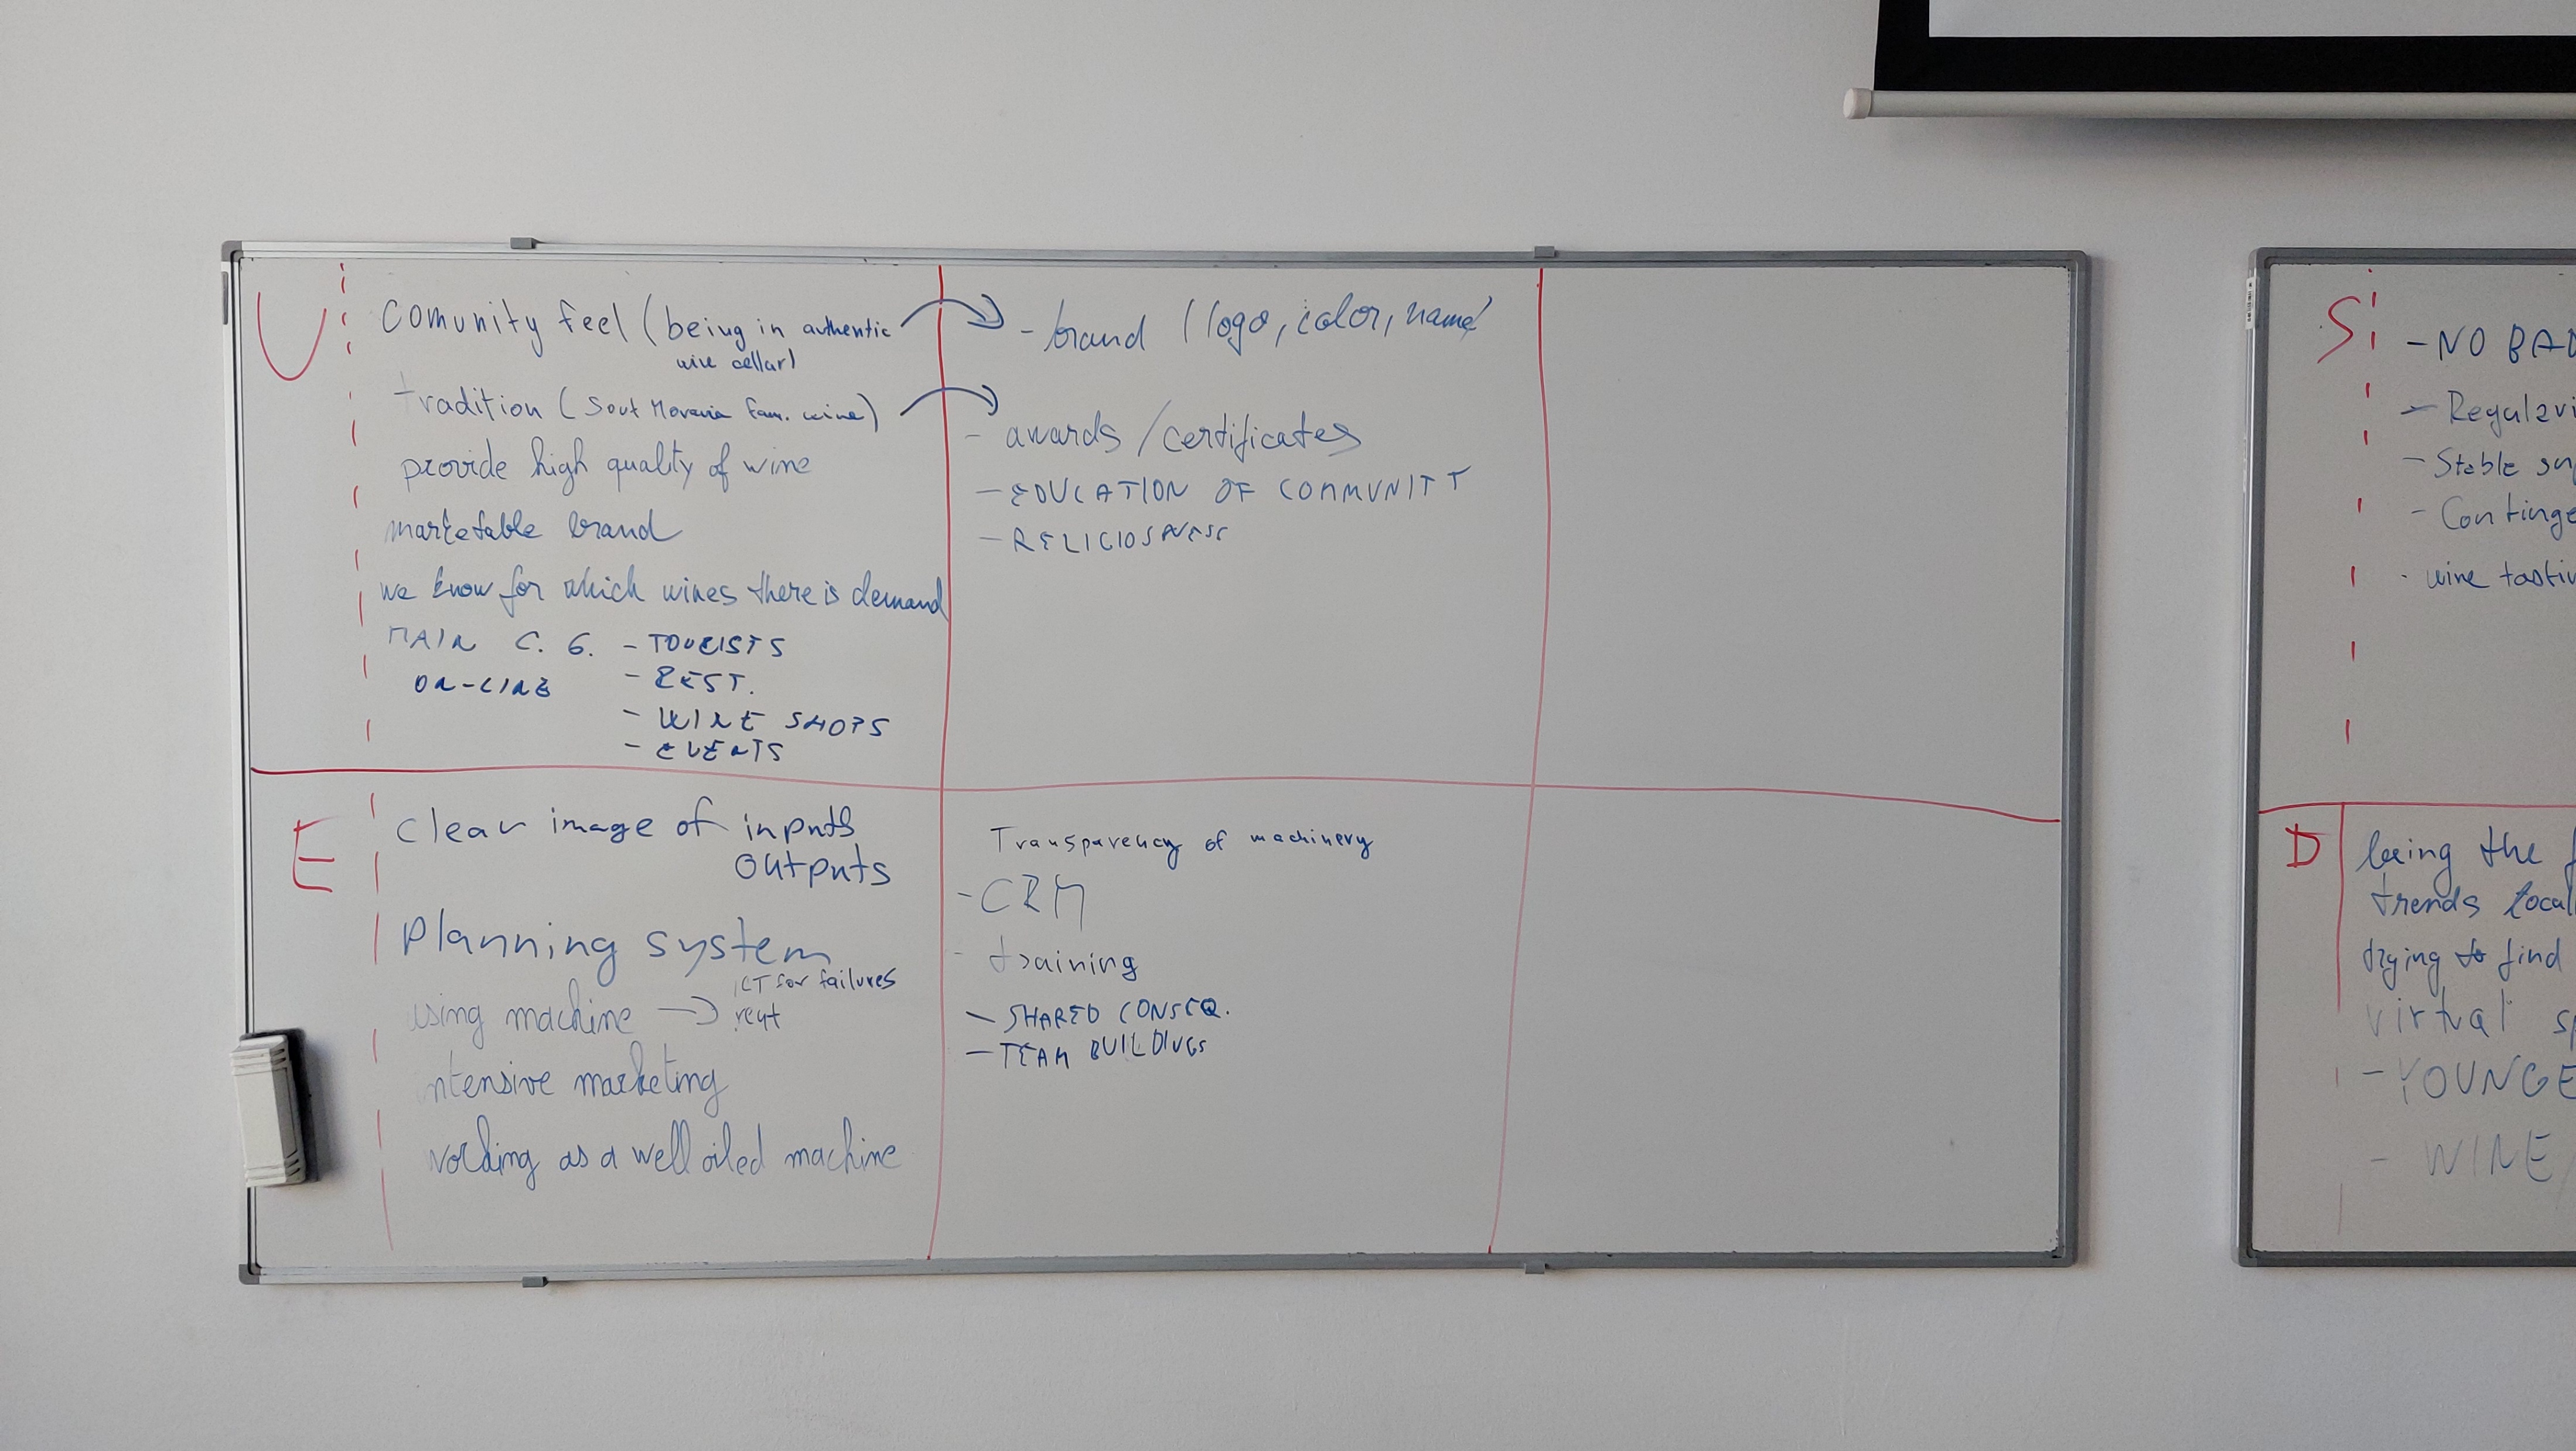 U
Comunity feel (being in authentic
wine cellar)
tradition (Sout Moravia fam. wine)
provide high quality of wine
marketable brand
we know for which wines there is demand
MAIN C. G. - TOURISTS
ON-LINE - REST.
- WINE SHOPS
- EVENTS
- brand (logo, color, name)
- awards / certificates
- EDUCATION OF COMMUNITY
- RELIGIOSNESS
E
Clear image of inputs
outputs
Planning system
using machine → ICT for failures
rent
intensive marketing
working as a well oiled machine
Transparency of machinery
- CRM
- training
- SHARED CONSEQ.
- TEAM BUILDINGS
Si
- NO BAD
- Regulari
- Stable su
- Continge
- wine tastin
D
being the f
trends local
trying to find
virtual sp
- YOUNGE
- WINE